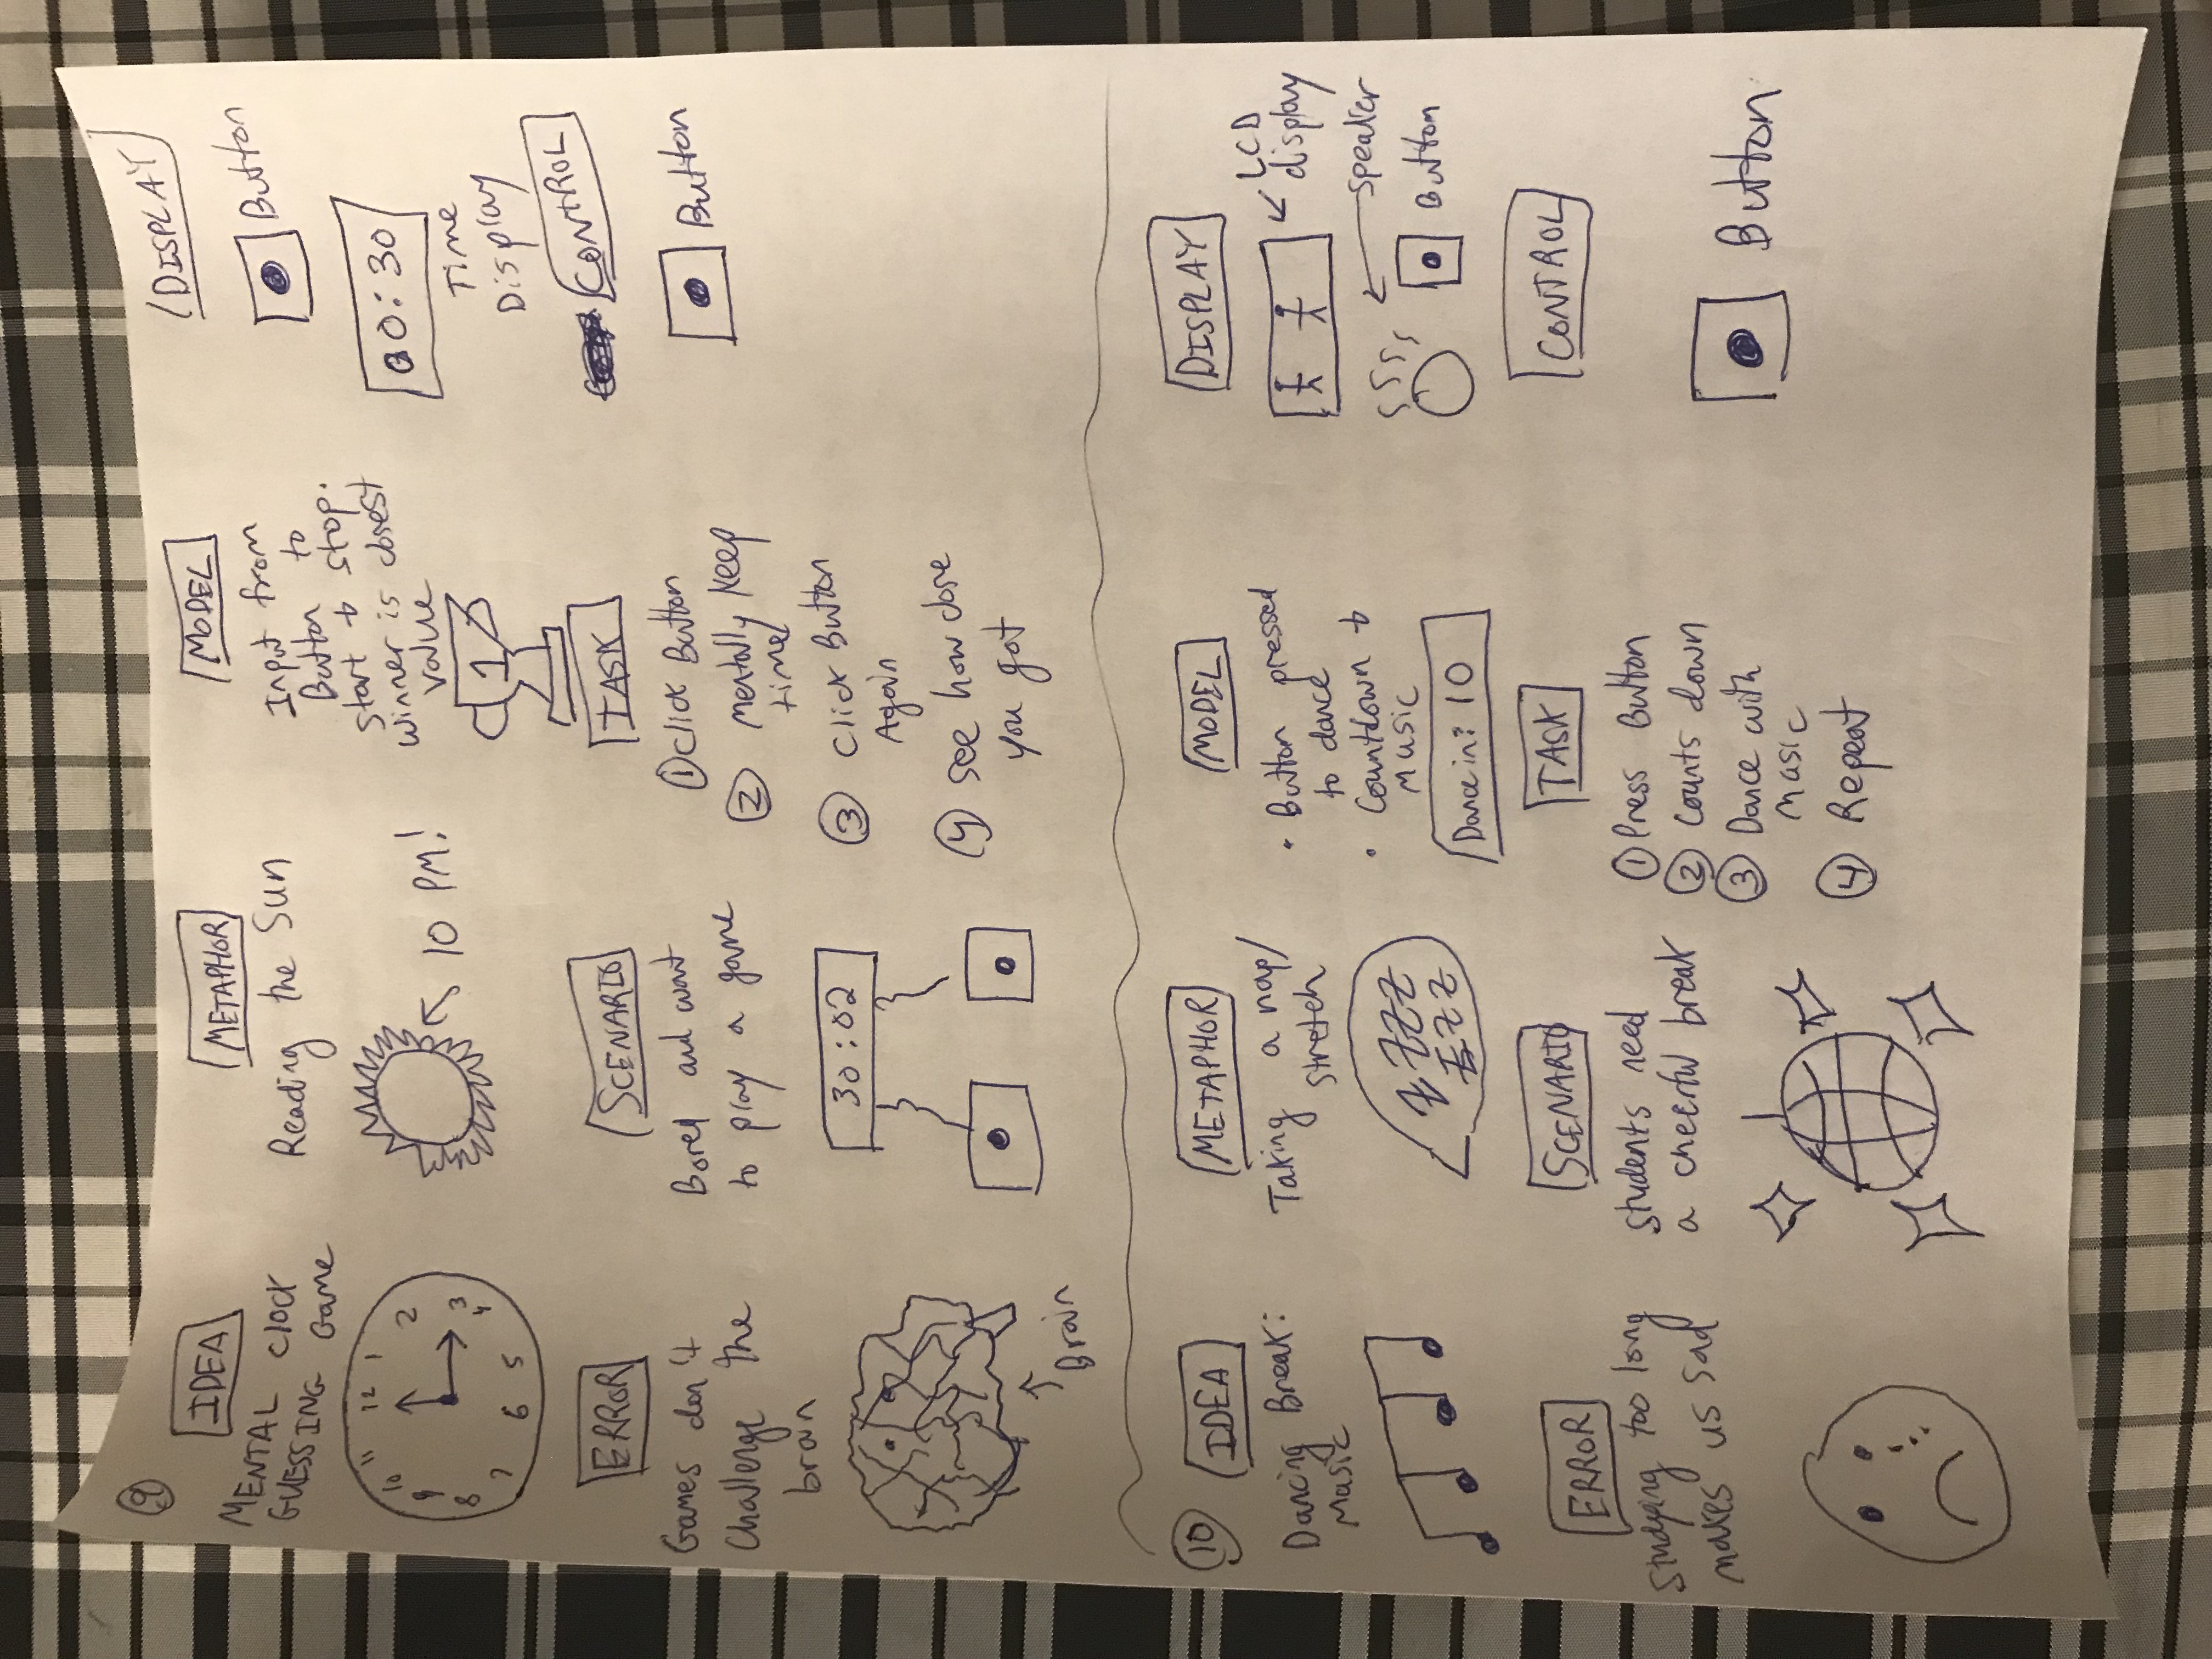 9
IDEA
MENTAL clock
GUESSING Game
12
1
2
3
4
5
6
7
8
9
10
11
METAPHOR
Reading the Sun
10 PM!
MODEL
Input from
Button to
start + stop.
winner is closest
value
1
DISPLAY
Button
00:30
Time
Display
ERROR
Games don't
Challenge the
brain
Brain
SCENARIO
Bored and want
to play a game
30:02
TASK
1 Click Button
2 mentally Keep
time
3 Click Button
Again
4 see how close
you got
CONTROL
Button
10
IDEA
Dancing Break:
Music
METAPHOR
Taking a nap/
stretch
Z ZZZ
ZZZ
MODEL
• Button pressed
to dance
• Countdown +
Music
Dance in: 10
DISPLAY
LCD
display
speaker
Button
ERROR
Studying too long
makes us sad
SCENARIO
students need
a cheerful break
TASK
1 Press Button
2 Counts down
3 Dance with
Music
4 Repeat
CONTROL
Button